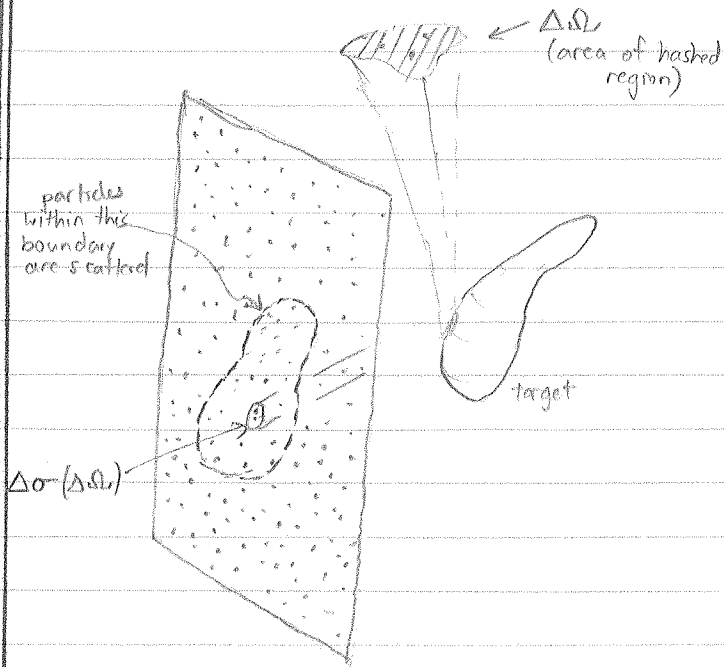 ΔΩ
(area of hashed
region)
particles
within this
boundary
are scattered
target
Δσ(ΔΩ)